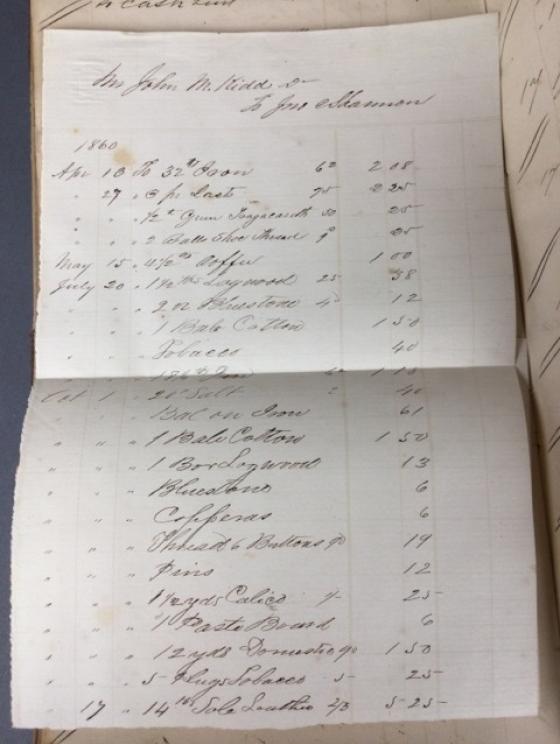 Mr John M. Kidd Dr
To Jno Shannon
1860
Apr 10 To 32 lb Iron 6½ 2 08
" 27 " 3 pr Lasts 75 2 25
" " " ½ lb Gum Tragacanth 50 25
" " " 2 Balls Shoe Thread 25
May 15 " 4½ lbs Coffee 1 00
July 20 " 1½ lbs Logwood 25 38
" " " 2 oz Bluestone 12
" " " 1 Bale Cotton 1 50
" " " Tobacco 40
" " " Iron
Oct 1 " 20 lb Salt 2 40
" " " Bal on Iron 61
" " " 1 Bale Cotton 1 50
" " " 1 Box Logwood 13
" " " Bluestone 6
" " " Copperas 6
" " " Thread & Buttons 19
" " " Pins 12
" " " 1½ yds Calico 25
" " " 1 Paste Board 6
" " " 12 yds Domestic 1 50
" " " 5 Plugs Tobacco 5 25
" 17 " 14 lbs Sole Leather 2/3 5 25